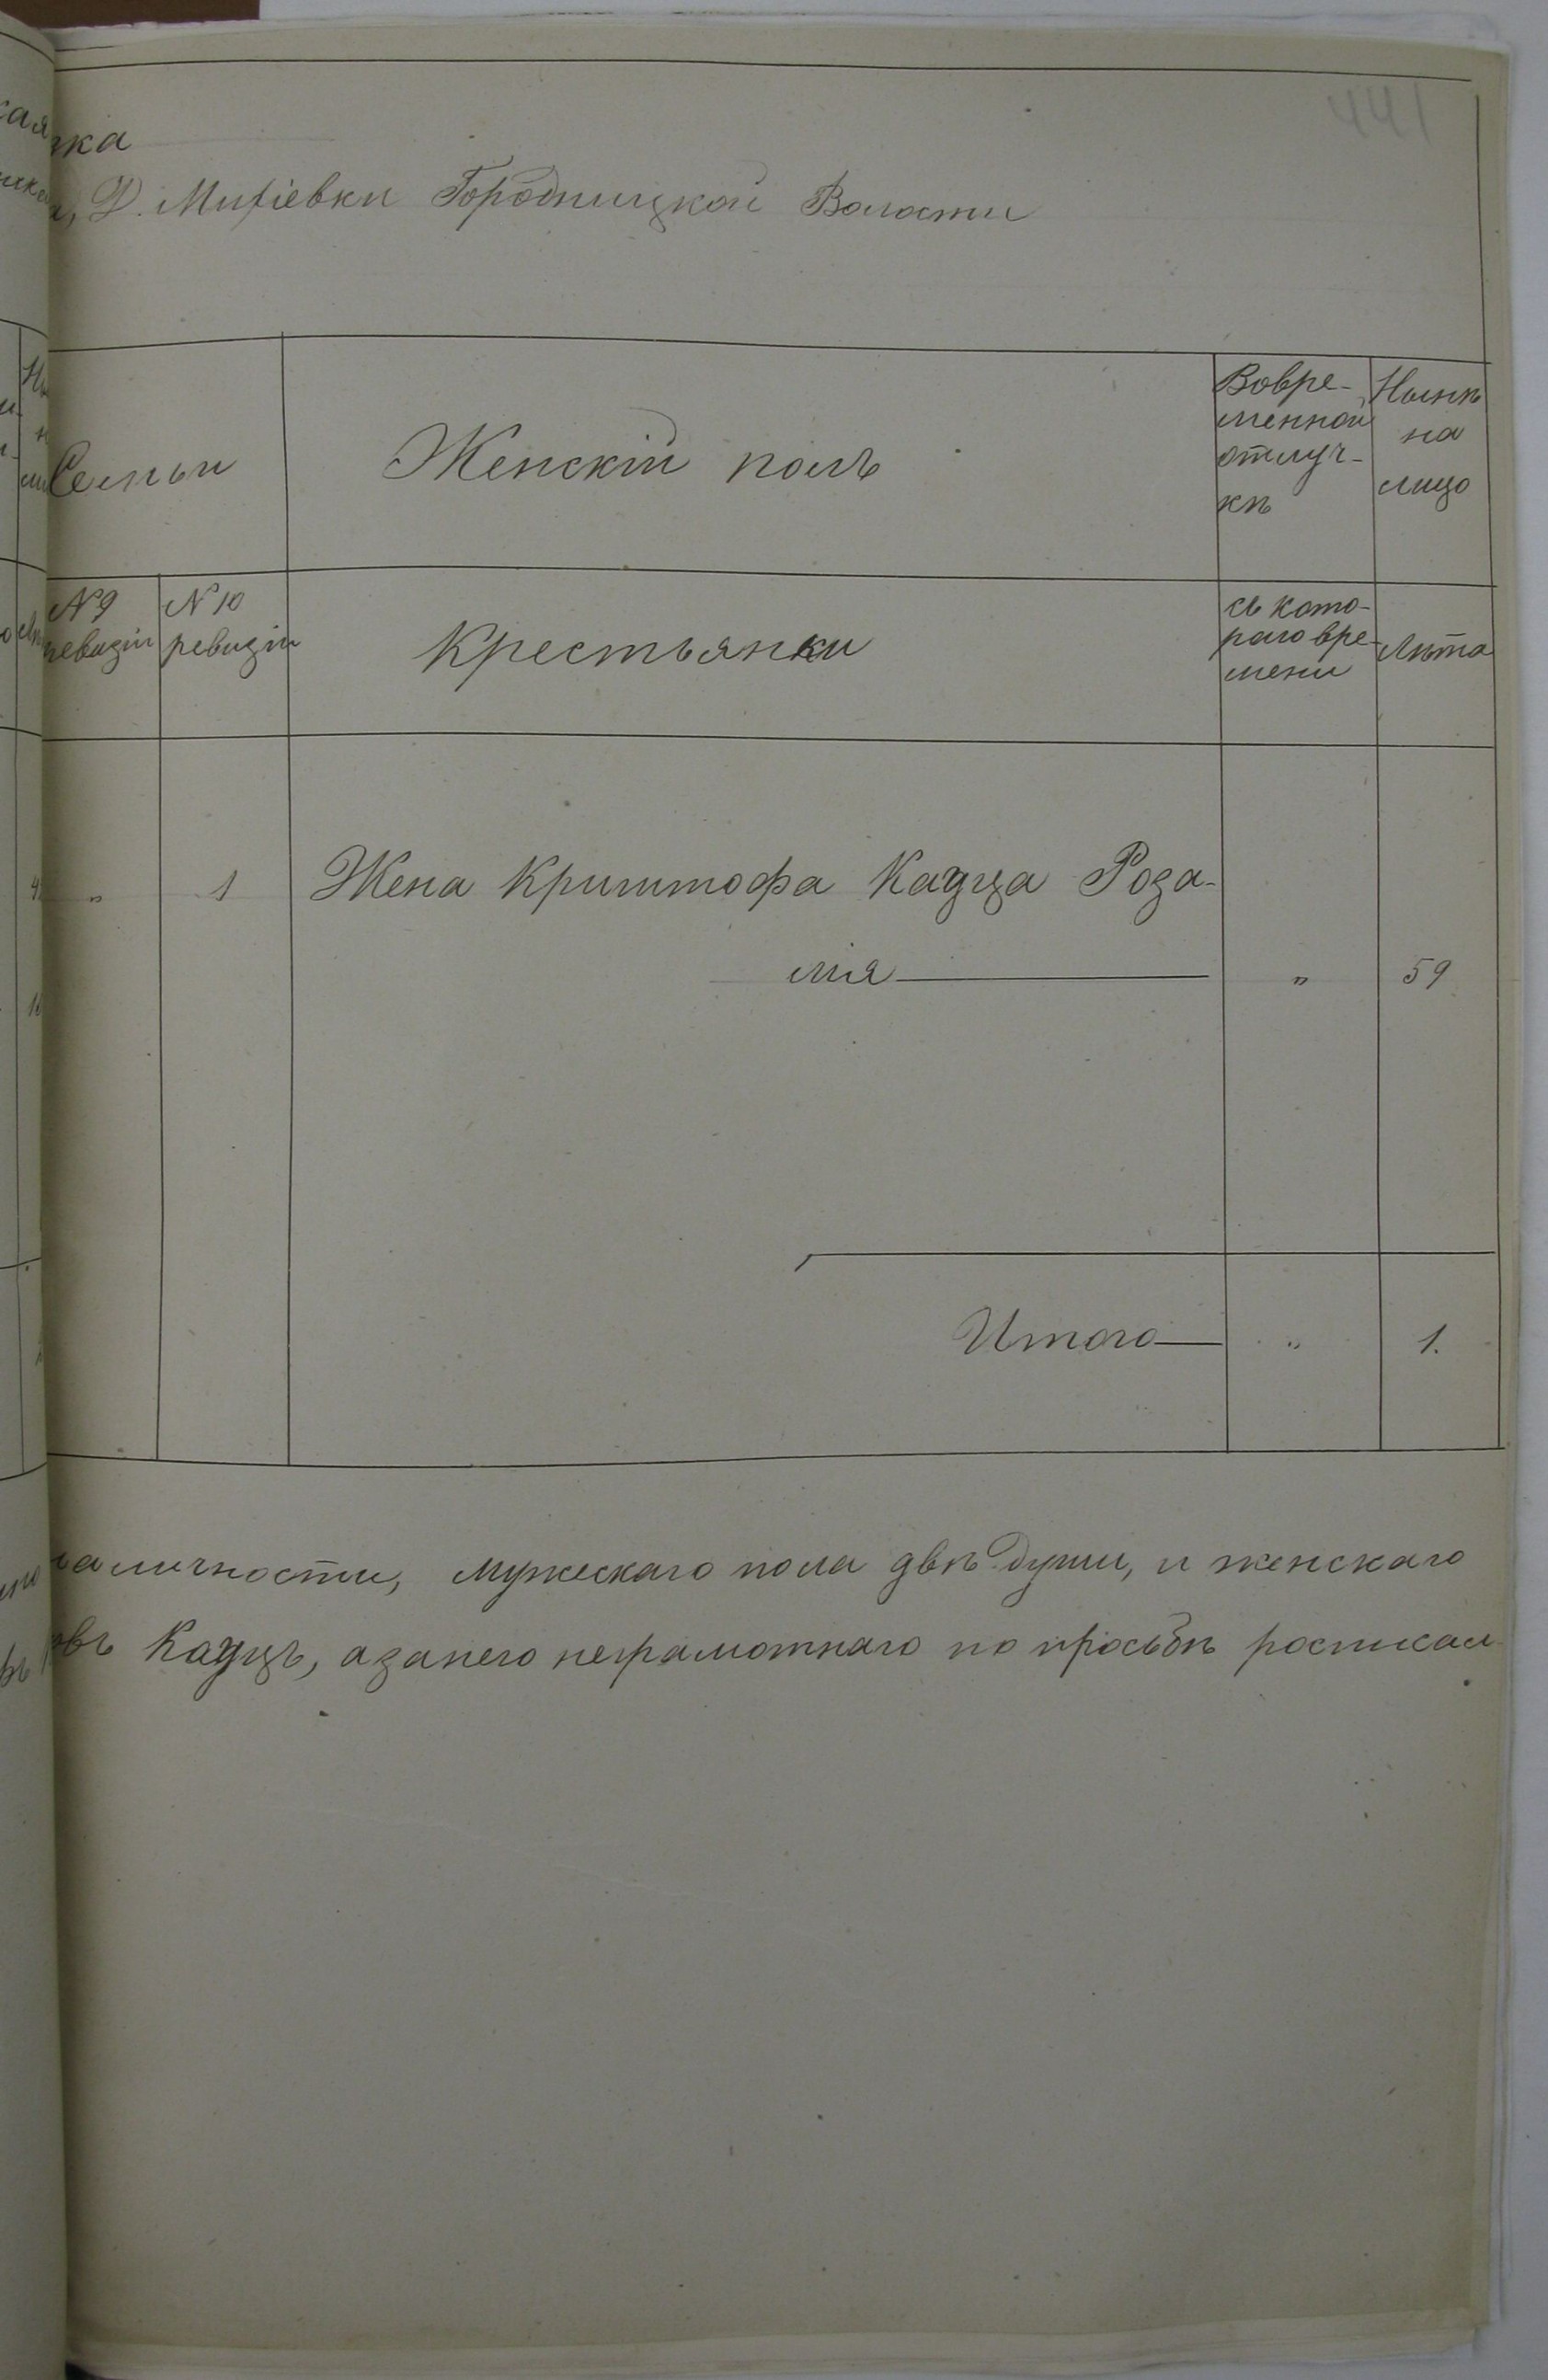 441
ка
Д. Мифіевки Городницкой Волости
Семьи
Женскій полъ
Вовре-
менной
отлуч-
кѣ
Нынѣ
на
лицо
N 9
ревизіи
N 10
ревизіи
Крестьянки
съ кото-
раго вре-
мени
Лѣта
„ 1 Жена Криштофа Кадца Роза-
лія „ 59
Итого „ 1.
наличности, мужескаго пола двѣ души, и женскаго
Кадцъ, азанего неграмотнаго по прозьбѣ росписал